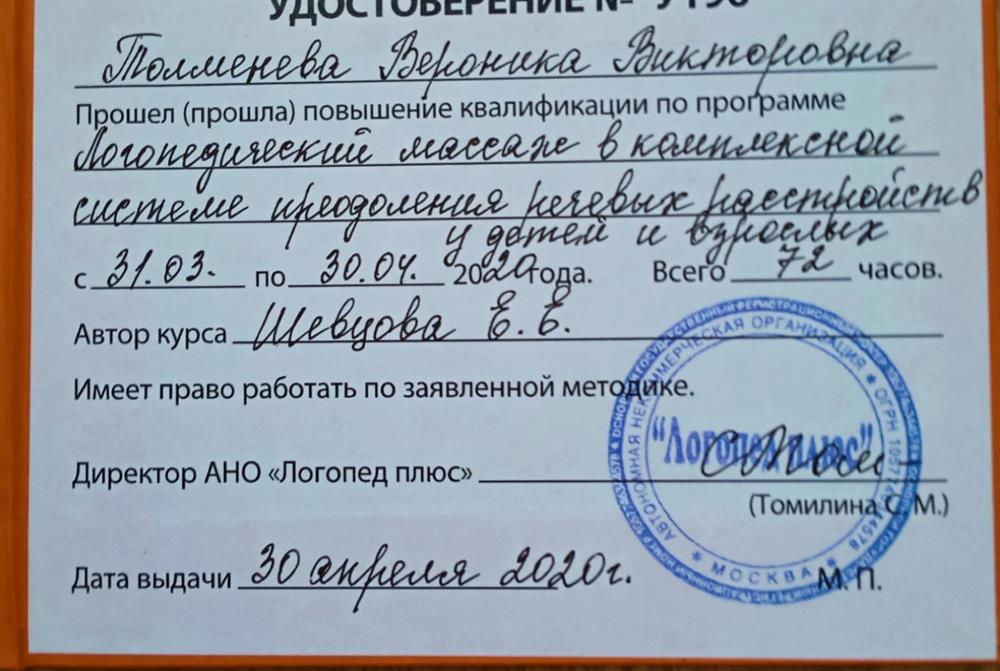 УДОСТОВЕРЕНИЕ №
Толменева Вероника Викторовна
Прошел (прошла) повышение квалификации по программе
Логопедический массаж в комплексной
системе преодоления речевых расстройств
у детей и взрослых
с 31.03. по 30.04. 2020 года. Всего 72 часов.
Автор курса Шевцова Е. Е.
Имеет право работать по заявленной методике.
АВТОНОМНАЯ НЕКОММЕРЧЕСКАЯ ОРГАНИЗАЦИЯ
"Логопед плюс"
Директор АНО «Логопед плюс»
(Томилина С. М.)
МОСКВА
Дата выдачи 30 апреля 2020г. М. П.